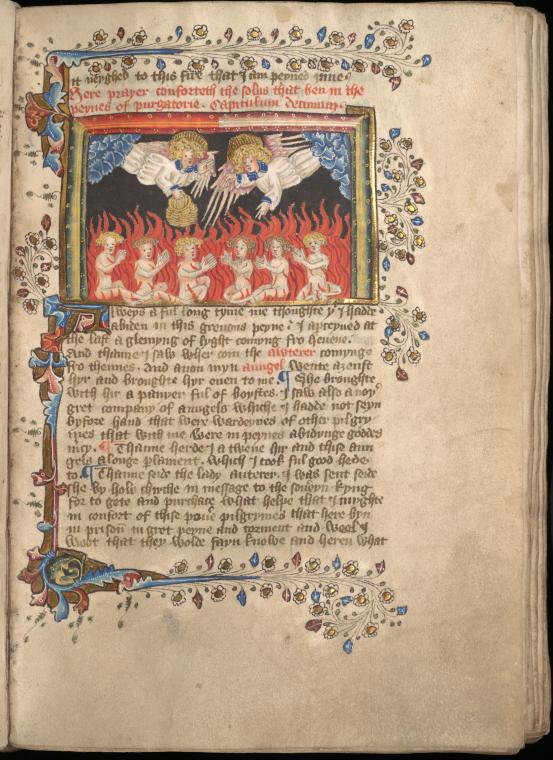 it weyghed to this fire that I am peyned inne
Here prayer conforteth the solus that ben in the
peynes of purgatorie. Capitulum decimum.
Alweys a ful long tyme me thoughte yt I hadde
abiden in this grevous peyne. I apceyued at
the last a glemyng of lyght comyng fro heuene.
And thanne I saw wher com the awterer comynge
fro thennes. And anon myn aungel wente azenst
hyr and broughte hyr euen to me. ¶ She broughte
with hir a panyer ful of boystes. I saw also a noyr
gret company of aungels whiche I hadde not seyn
byfore hand that were wardeynes of other pilgry
mes that with me were in peynes abidynge goddes
mcy. ¶ Thanne herde I a twene hir and these aun
gels a longe plament. which I took ful good hede
to. ¶ Thanne seide the lady auterer. I was sent seide
she by holy chirche in message to the souveyn kyng
for to gete and purchace what helpe that I myghte
in confort of thise poure pilgrymes that here byn
in prison in gret peyne and torment and weel I
woot that they wolde fayn knowe and heren what